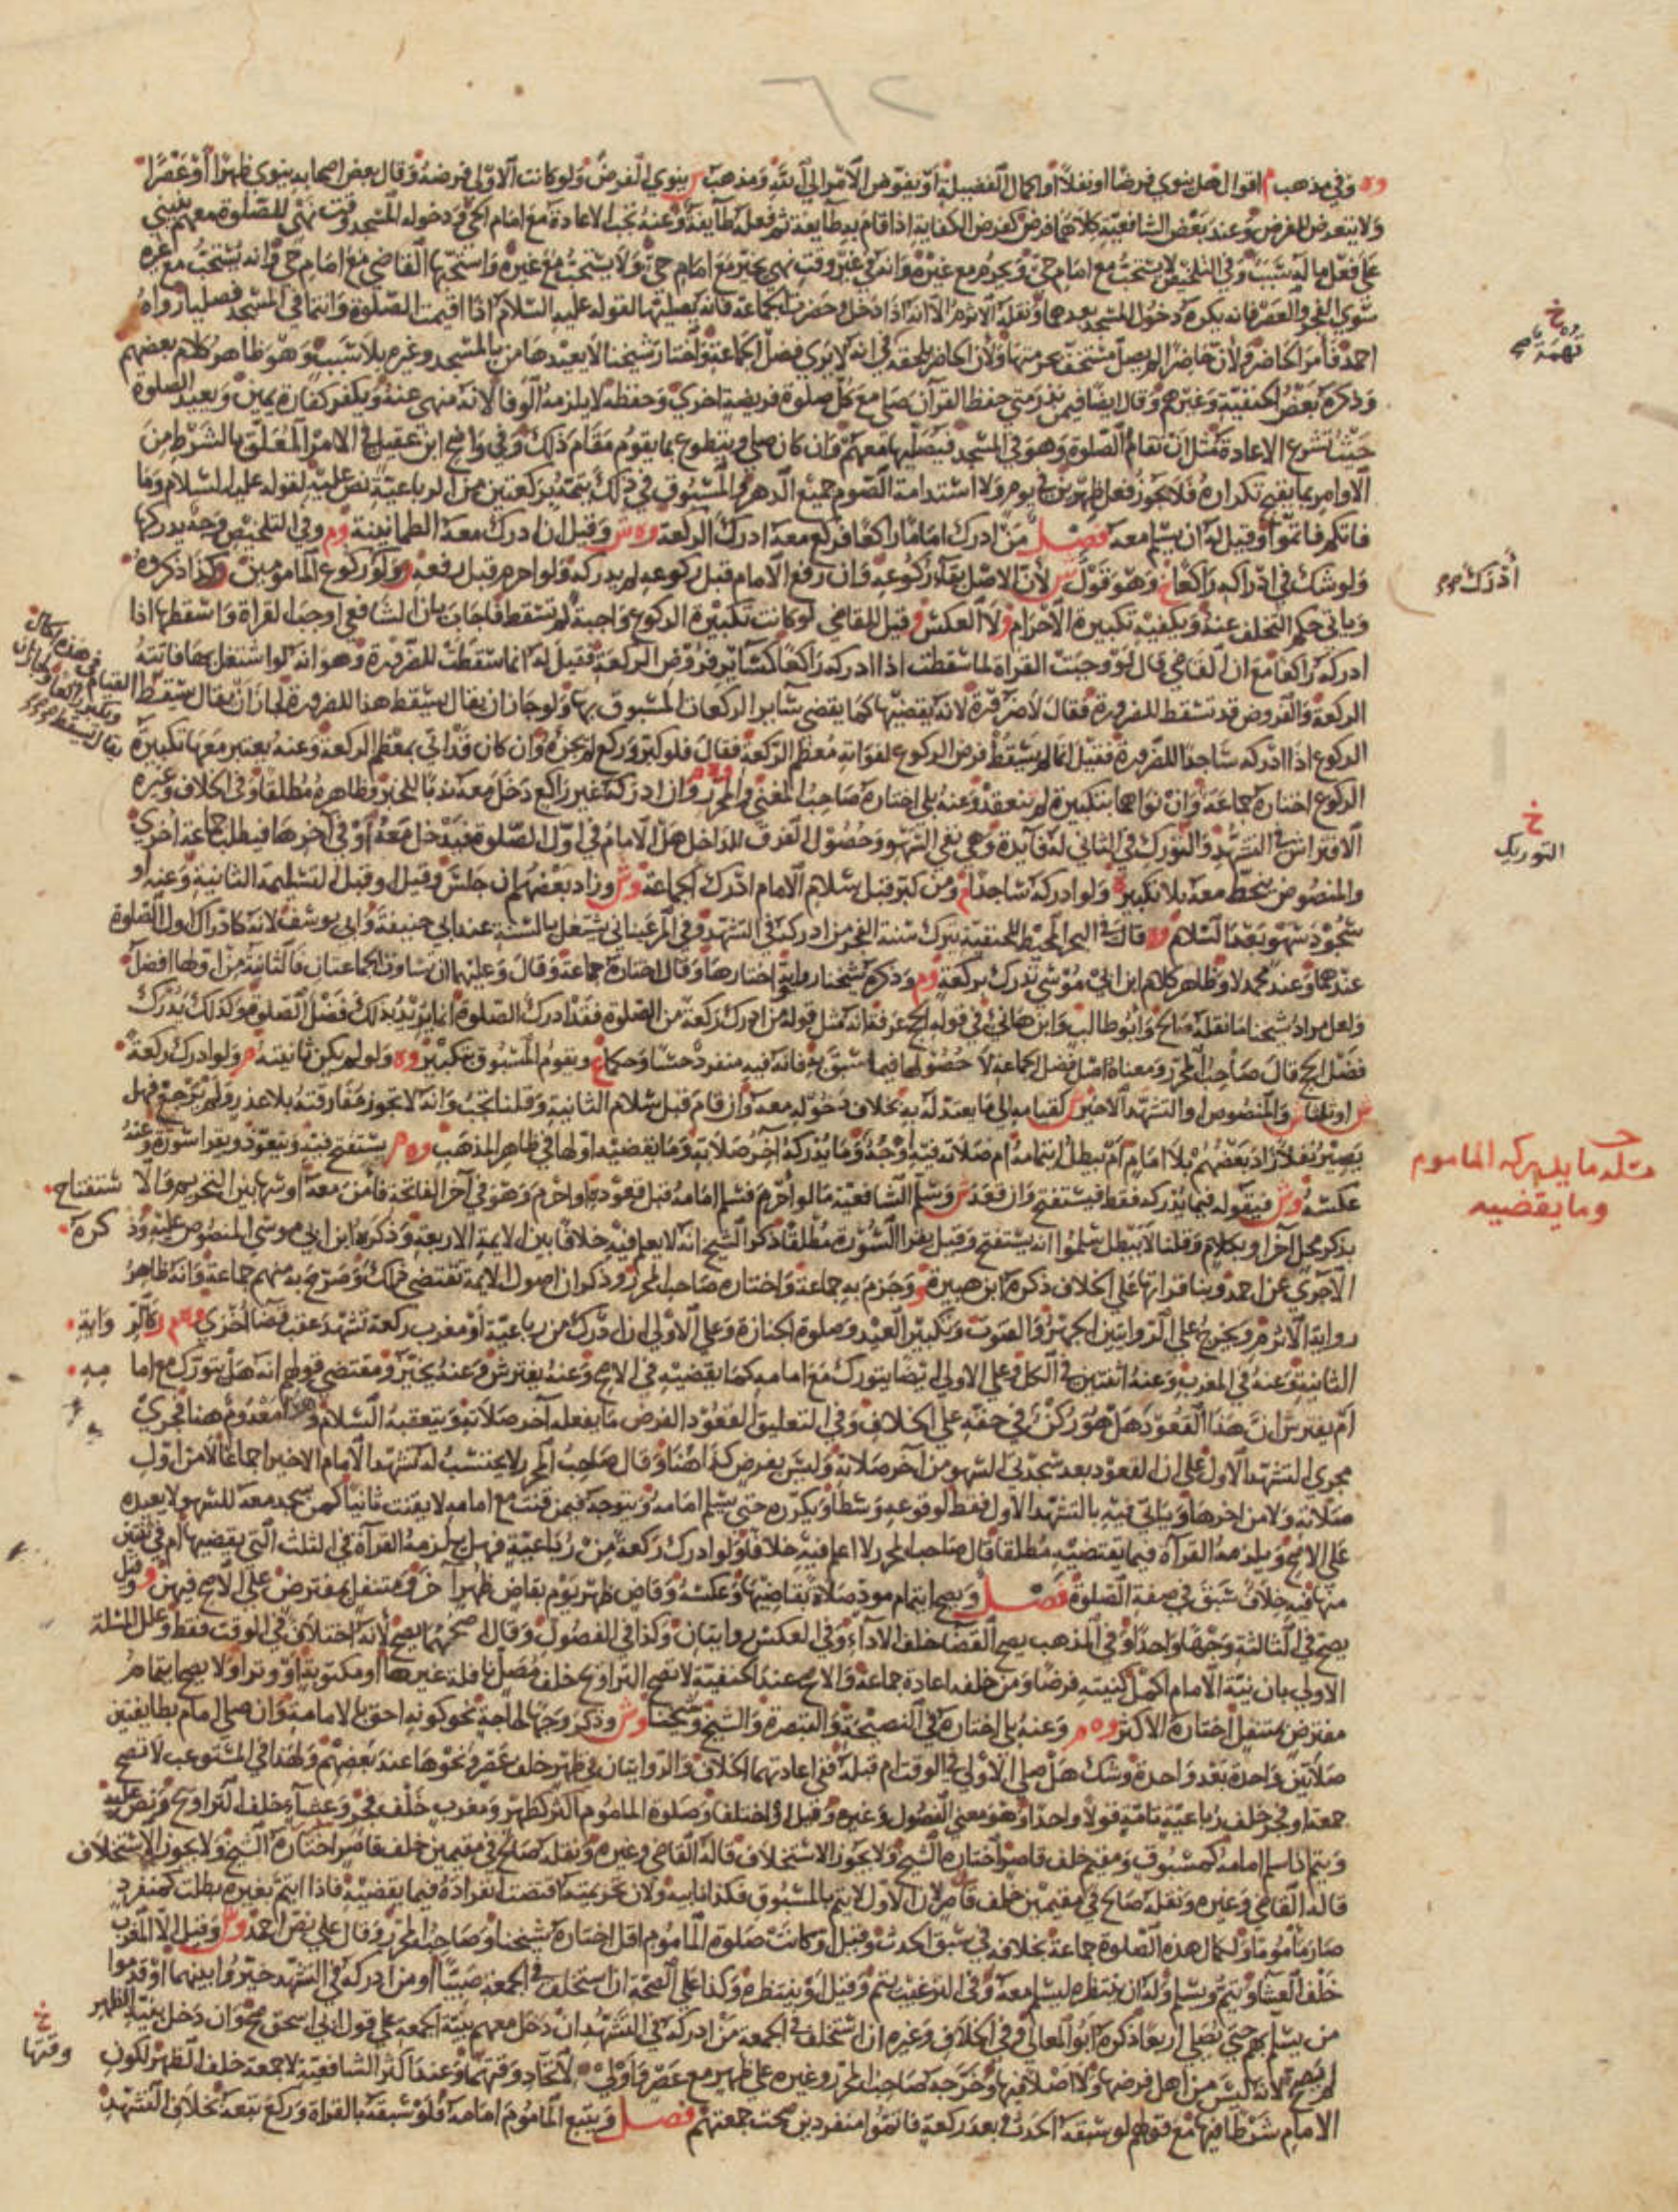 ٦٢
وه وفي مذهب م اقوال هل ينوي فرضا او نفلا او اكمال الفضيلة او يفوض الامر الى الله ومذهب س ينوي الفرض ولو كانت الاولى فرضه وقال بعض اصحابه ينوي ظهرا او عصرا
ولا يتعرض للفرض وعند بعض الشافعية كلاهما فرض كفرض الكفاية اذا قام به طايفة ثم فعله طايفة وعنه تجب الاعادة مع امام الحي وفي دخوله المسجد وقت نهي للصلوة معهم ينبني
على فعل ما له سبب وفي التلخيص لا يستحب مع امام حي ويحرم مع غيره وانه في غير وقت نهي يخير مع امام حي ولا يستحب مع غيره واستحبها القاضي مع امام حي وانه يستحب مع غيره
سوى الفجر والعصر فانه يكره دخول المسجد بعدهما ونقله الاثرم الا انه اذا دخل وحضرت الجماعة فانه يصليها لقوله عليه السلام اذا اقيمت الصلوة وانتما في المسجد فصليا رواه
احمد فامر الحاضر ولان حاضرا لم يصل مستخف بحرمتها ولان الحاضر يلحقه في انه لا يرى فضل الجماعة واختار شيخنا لا يعيدها من بالمسجد وغيره بلا سبب وهو ظاهر كلام بعضهم
وذكره بعض الحنفية وغيرهم وقال ايضا فيمن نذر متى حفظ القرآن صلى مع كل صلوة فريضة اخرى وحفظه لا يلزمه الوفا لانه منهي عنه ويكفر كفارة يمين ويعيد الصلوة
حيث تشرع الاعادة مثل ان تقام الصلوة وهو في المسجد فيصليها معهم وان كان صلى ويتطوع بما يقوم مقام ذلك وفي واضح ابن عقيل في الامر المعلق بالشرط من
الاوامر ما يقبح تكراره فلا يجوز فعل ظهرين في يوم ولا استدامة الصوم جميع الدهر والمسبوق في ذلك يتمه بركعتين من الرباعية نص عليه لقوله عليه السلام وما
فاتكم فاتموا وقيل له ان يسلم معه فصل من ادرك اماما راكعا فركع معه ادرك الركعة وه ش وقيل ان ادرك معه الطمانينة وم وفي التلخيص وجه يدركها
ولو شك في ادراكه راكعا وهو قول س لان الاصل بقاء ركوعه وان رفع الامام قبل ركوعه لم يدركه ولو احرم قبل رفعه ولو ركوع المامومين وكذا ذكروه
وياتي حكم التخلف عنه ويكفيه تكبيرة الاحرام ولا العكس وقيل للقاضي لو كانت تكبيرة الركوع واجبة لم تسقط فاجاب بان الشافعي اوجب القراة واسقطها اذا
ادركه راكعا مع ان القاضي قال لو وجبت القراة لما سقطت اذا ادركه راكعا كساير فروض الركعة فقيل له انما سقطت للضرورة وهو انه لو اشتغل بها فاتته
الركعة والفروض قد تسقط للضرورة فقال لا ضرورة لانه يقضيها كما يقضي ساير الركعات المسبوق بها ولو جاز ان يقال يسقط هذا للضرورة لجاز ان يقال يسقط
الركوع اذا ادركه ساجدا للضرورة فقيل انما لم يسقط فرض الركوع لفواته معظم الركعة فقال فلو كبر وركع لم يجزه وان كان قد اتى بمعظم الركعة وعنه يعتبر معها تكبيرة
الركوع اختاره جماعة وان نواهما بتكبيرة لم تنعقد وعنه بلى اختاره صاحب المغني والمحرر وان ادركه غير راكع دخل معه ندبا للخبر وظاهره مطلقا وفي الخلاف وغيره
الافتراش في التشهد والتورك في الثاني له فايدة وهي نفي السهو وحصول الفرق للداخل هل الامام في اول الصلوة فيدخل معه او في آخرها فيطلب جماعة اخرى
والمنصوص ينحط معه بلا تكبير ولو ادركه ساجدا ومن كبر قبل سلام الامام ادرك الجماعة وش وزاد بعضهم ان جلس وقيل او قبل التسليمة الثانية وعنه او
سجود سهو بعد السلام وه قال في البحر المحيط للحنفية يترك سنة الفجر من ادركه في التشهد وفي المرغيناني يشتغل بالسنة عند ابي حنيفة وابي يوسف لانه كادراك اول الصلوة
عندهما وعند محمد لا وظاهر كلام ابن ابي موسى تدرك بركعة وم وذكره شيخنا رواية اختارها وقال اختاره جماعة وقال وعليهما ان تساوت الجماعتان فالثانية من اولها افضل
ولعل مراد شيخنا ما نقله صالح وابو طالب وابن هانئ في قوله الحج عرفة انه مثل قوله من ادرك ركعة من الصلوة فقد ادرك الصلوة انما يريد بذلك فضل الصلوة وكذلك يدرك
فضل الحج قال صاحب المحرر ومعناه اصل فضل الجماعة لا حصولها فيما سبق به فانه فيه منفرد حسا وحكما ع ويقوم المسبوق بتكبير وه ولو لم يكن ثانيته م ولو ادرك ركعة
والمنصوص او التشهد الاخير كقيامه الى ما يعتد له به بخلاف تحوله معه وان قام قبل سلام الثانية وقلنا تجب وانه لا يجوز مفارقته بلا عذر ولم يرجع فهل
يصير نفلا زاد بعضهم بلا امام ام يبطل ائتمامه ام صلاته فيه اوجه وما يدركه آخر صلاته وما يقضيه اولها في ظاهر المذهب وه م يستفتح فيه ويتعوذ ويقرا سورة وعنه
عكسه وش فيقوله فيما يدركه فقط فيستفتح وان قعد ش وسلم الشافعية ما لو احرم فسلم امامه قبل قعوده او احرم وهو في آخر الفاتحة فامن معه او سها بين التحريم والا ستفتاح
بذكر محل آخر او بكلام وقلنا لا تبطل سلموا انه يستفتح وقيل يقرا السورة مطلقا ذكر الشيخ انه لا يعلم فيه خلافا بين الايمة الاربعة وذكره ابن ابي موسى المنصوص عليه وذ كره
الآجري عن احمد وبنا قراتها على الخلاف ذكره ابن هبيرة و وجزم به جماعة واختاره صاحب المحرر وذكر ان اصول الايمة تقتضي ذلك وصرح به منهم جماعة وانه ظاهر
رواية الاثرم ويخرج على الروايتين الجهر والقنوت وتكبير العيد وصلوة الجنازة وعلى الاولى ان ادرك من رباعية او مغرب ركعة تشهد عقب قضا اخرى وه م ر كالر واية
الثانية وعنه في المغرب وعنه اثنتين في الكل وعلى الاولى ايضا يتورك مع امامه كما يقضيه في الاصح وعنه يفترش وعنه يخير ومقتضى قولهم انه هل يتورك مع اما مه
ام يفترش ان هذا القعود هل هو ركن في حقه على الخلاف وفي التعليق القعود الفرض ما يفعله آخر صلاته ويتعقبه السلام وهذا معدوم هنا فجرى
مجرى التشهد الاول على ان القعود بعد سجدتي السهو من آخر صلاته وليس بفرض كذا هنا وقال صاحب المحرر لا يحتسب له بتشهد الامام الاخير اجماعا لا من اول
صلاته ولا من اخرها وياتي فيه بالتشهد الاول فقط لوقوعه وسطا ويكرره حتى يسلم امامه ويتوجه فيمن قنت مع امامه لا يقنت ثانيا كمن سجد معه للسهو لا يعيده
على الاصح ويلزمه القراة فيما يقضيه مطلقا قال صاحب المحرر لا اعلم فيه خلافا ولو ادرك ركعة من رباعية فهل يلزمه القراة في الثلث التي يقضيها ام في ثنتين
منها فيه خلاف سبق في صفة الصلوة فصل ويصح ائتمام مود صلاة بقاضيها وعكسه وقاض ظهر يوم بقاض ظهر آخر ومتنفل بمفترض على الاصح فيهن وقيل
يصح في الثالثة وجها واحدا وفي المذهب يصح القضا خلف الاداء وفي العكس روايتان وكذا في الفصول وقال اصحهما يصح لانه اختلاف في الوقت فقط وعلل المسلة
الاولى بان نية الامام اكمل كنيته فرضا ومن خلفه اعادة جماعة والاصح عند الحنفية لا تصح التراويح خلف مصل نافلة غيرها او مكتوبة او وترا ولا يصح ايتمام
مفترض بمتنفل اختاره الاكثر وه م وعنه بلى اختاره في النصيحة والتبصرة والشيخ وشيخنا وش وذكر وجها لحاجة نحو كونه احق بالامامة وان صلى امام بطايفتين
صلاتين واحدة بعد واحدة وشك هل صلى الاولى في الوقت ام قبله ففي اعادتهما الخلاف والروايتان في ظهر خلف عصر ونحوها عند بعضهم ولهذا في المستوعب لا تصح
جمعة او فجر خلف رباعية تامة قولا واحدا وهو معنى الفصول وغيره وقيل او اختلفا وصلوة الماموم اكثر كظهر ومغرب خلف فجر وعشاء خلف التراويح ونص عليه
ويتم اذا سلم امامه كمسبوق ومقيم خلف قاصر اختاره الشيخ ولا يجوز الاستخلاف قاله القاضي وغيره ونقله صالح في مقيمين خلف قاصر اختاره الشيخ ولا يجوز الاستخلاف
قاله القاضي وغيره ونقله صالح في مقيمين خلف قاصر لان الاول لا يتم بالمسبوق فكذا نايبه ولان تحريمته اقتضت انفراده فيما يقضيه فاذا ايتم بغيره بطلت كمنفرد
صار ماموما ولكمال هذه الصلوة جماعة بخلافه في سبق الحدث وقيل او كانت صلوة الماموم اقل اختاره شيخنا وصاحب المحرر وقال على نص احمد وش وقيل الا المغرب
خلف العشا ويتم ويسلم وله ان ينتظره ليسلم معه وفي الترغيب يتم وقيل او ينتظره وكذا على الصحة ان استخلف في الجمعة صبيا او من ادركه في التشهد خيروا بينهما او قدموا
من يسلم بهم حتى يصلي اربعا ذكره ابو المعالي وفي الخلاف وغيره ان استخلف في الجمعة من ادركه في التشهد ان دخل معهم بنية الجمعة على قول ابي اسحق صح وان دخل بنية الظهر
لم يصح لانه ليس من اهل فرضها ولا اصلا فيها وخرجه صاحب المحرر وغيره على ظهر مع عصر واولى لاتحاد وقتهما وعند اكثر الشافعية لا جمعة خلف الظهر لكون
الامام شرطا فيها مع قولهم لو سبقه الحدث بعد ركعة فاتموا منفردين صحت جمعتهم فصل ويتبع الماموم امامه فلو سبقه بالقراة وركع تبعه بخلاف التشهد
خ
ادرك
خ
التوريك
مسلة ما يدركه الماموم
وما يقضيه
خ
وقتها